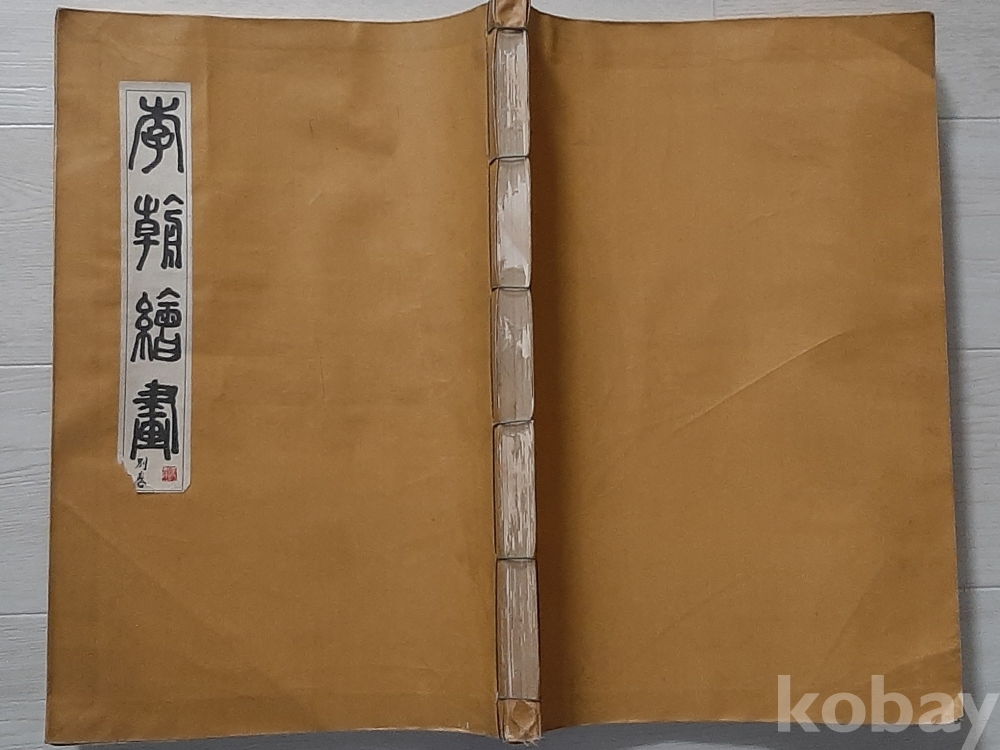 李朝繪畫
kobay